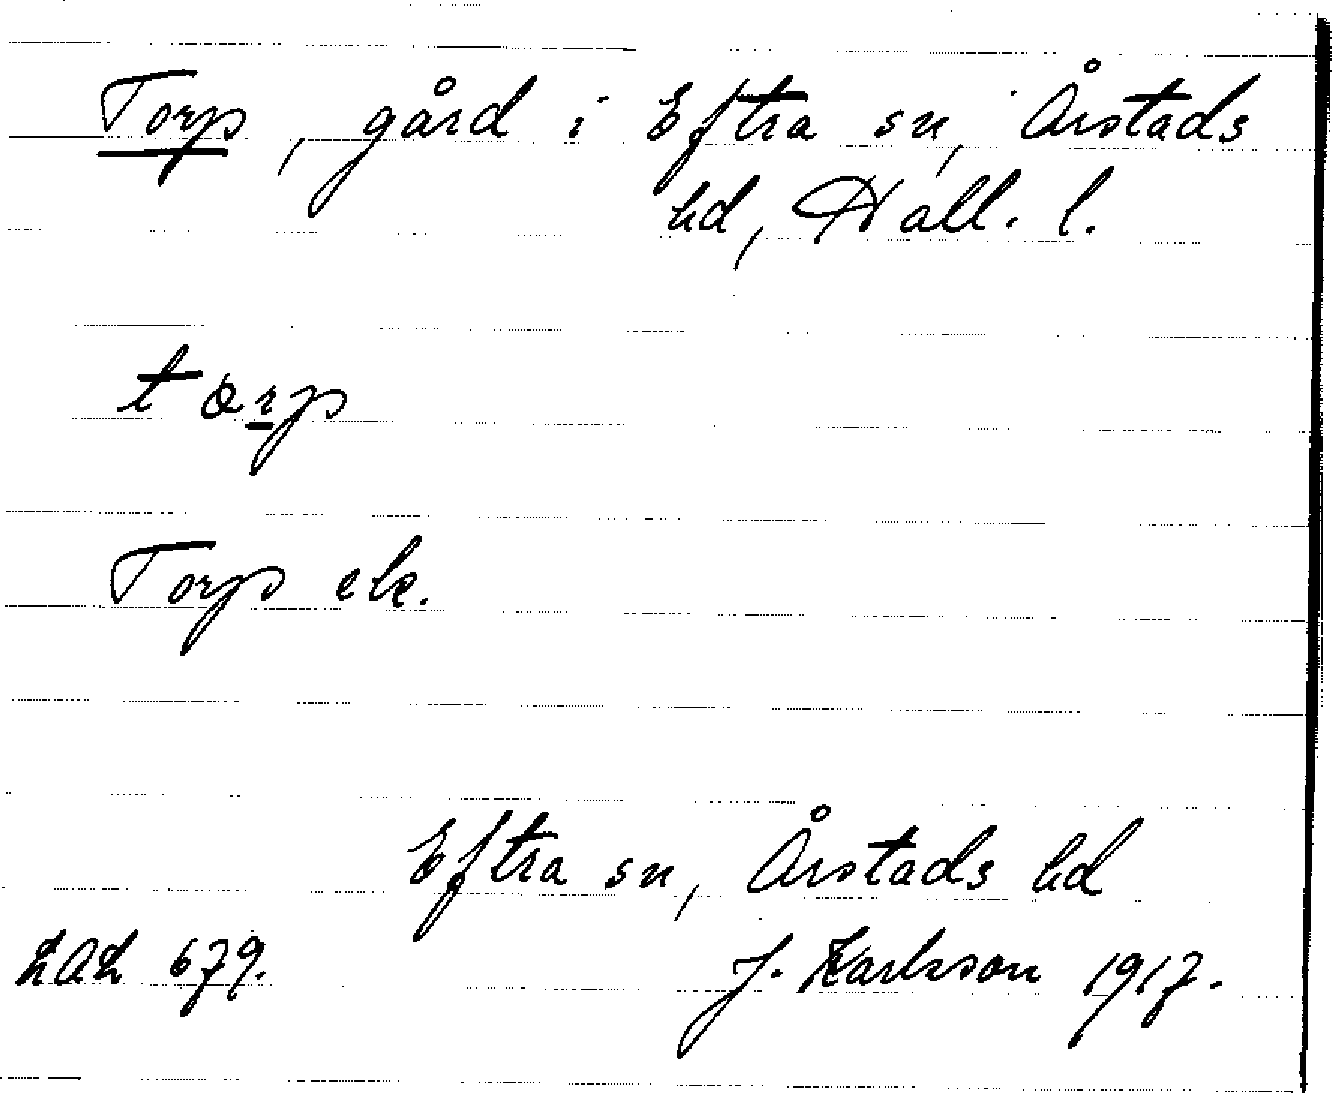 Torp, gård i Eftra sn, Årstads
hd, Hall. l.
torp
Torp ek.
Eftra sn, Årstads hd
LAL 679. J. Karlsson 1917.